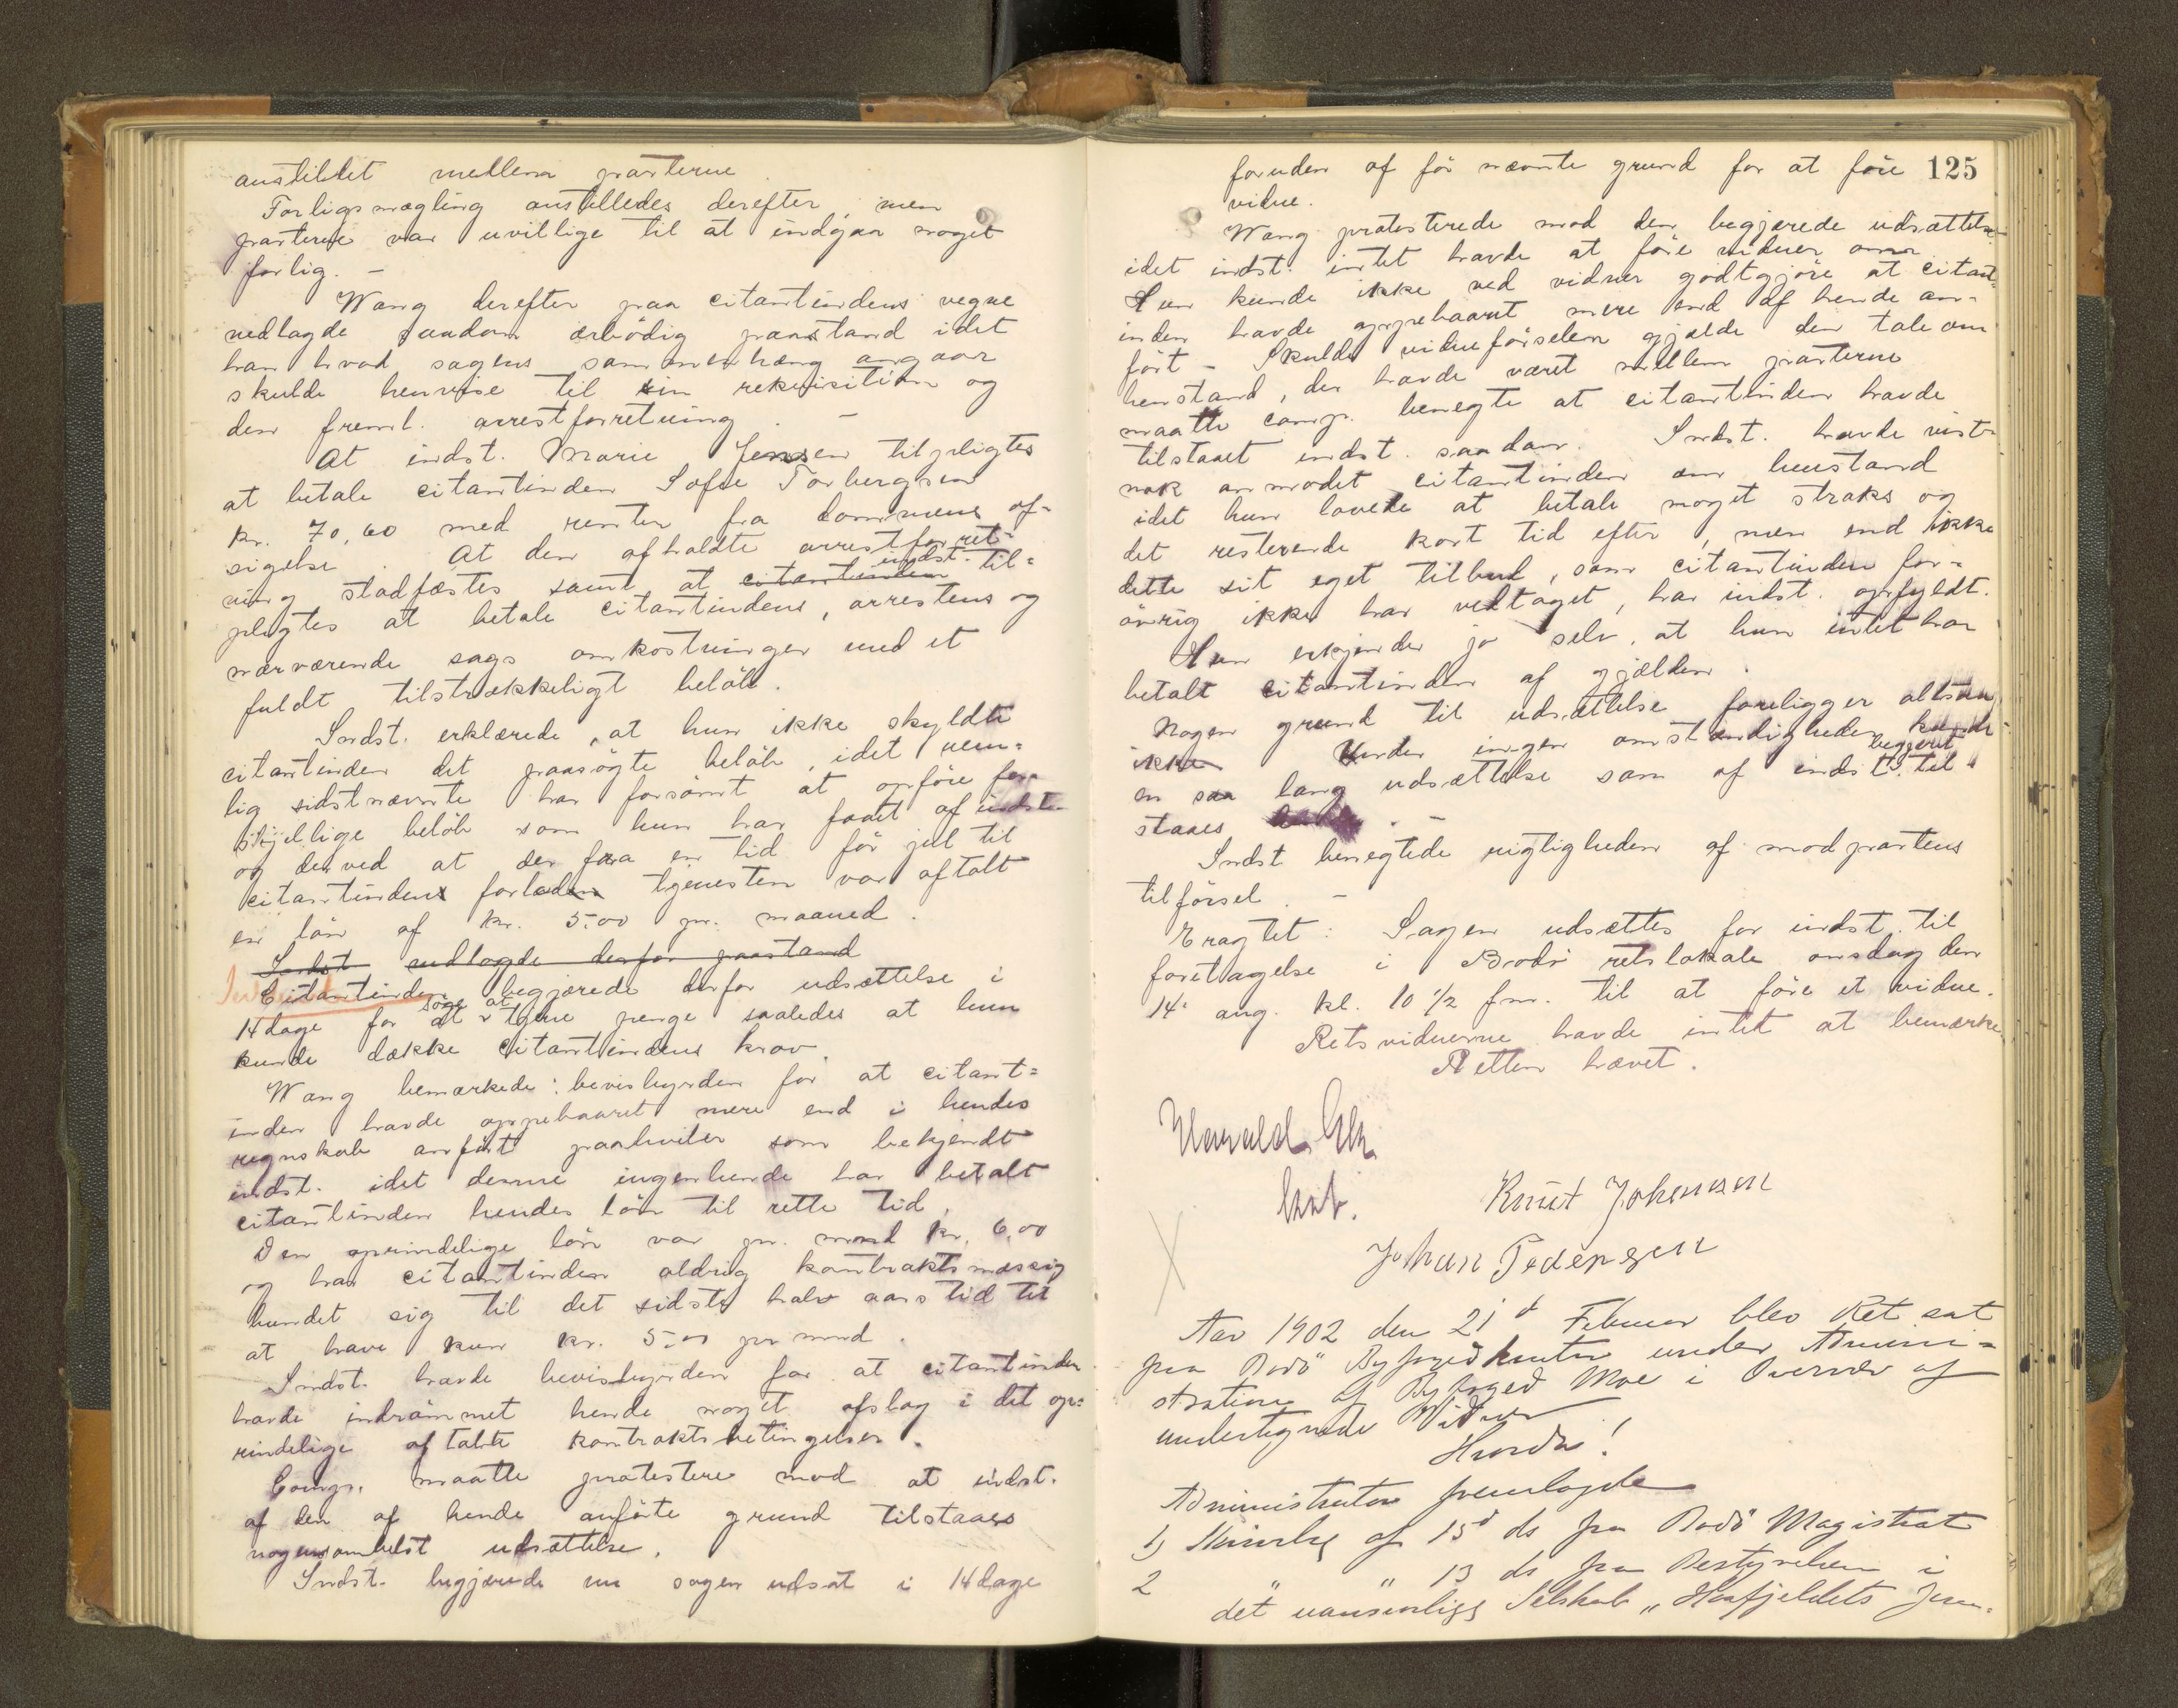 anstillet mellem parterne.
Forligsmægling anstilledes derefter, men
parterne var uvillige til at indgaa noget
forlig. –
Wang derefter paa citantindens vegne
nedlagde saadan ærbödig paastand idet
han hvad sagens sammenhæng angaar
skulde henvise til sin rekvisition og
den freml. arrestforretning. –
At indst. Marie Jensen tilpligtes
at betale citantinden Sofie Torbergsen
kr. 70,60 med renter fra dommens af-
sigelse. At den afholdte arrestforret-
ning stadfæstes samt at citantinden indst. til-
pligtes at betale citantindens, arrestens og
nærværende sags omkostninger med et
fuldt tilstrækkeligt belöb.
Indst. erklærede, at hun ikke skyldte
citantinden det paasögte belöb, idet nem-
lig sidstnævnte har forsömt at opföre for-
skjellige belöb som hun har faaet af indst.
og derved at der fra en tid för jul til
citantindens forladen tjenesten var aftalt
en lön af kr. 5.00 pr. maaned.
Indst nedlagde derfor paastand
Citantinden begjærede derfor udsættelse i
14 dage for at söge at tjene penge saaledes at hun
kunde dække citantindens krav.
Wang bemærkede: bevisbyrden for at citant=
inden havde oppebaaret mere end i hendes
regnskab anfört paahviler som bekjendt
indst. idet denne ingenlunde har betalt
citantinden hendes lön til rette tid.
Den oprindelige lön var pr. mnd kr. 6,00
og har citantinden aldrig kontraktsmæssig
bundet sig til det sidste halv aars tid til
at have kun kr. 5.00 pr mnd.
Indst. havde bevisbyrden for at citantinden
havde indrömmet hende noget afslag i det op=
rindelige aftalte kontraktsbetingelser.
Comp. maatte protestere mod at indst.
af den af hende anförte grund tilstaaes
nogensomhelst udsættelse.
Indst. begjærede nu sagen udsat i 14 dage
125
foruden af för nævnte grund for at före
vidne.
Wang protesterede mod den begjærede udsættelse
idet indst. intet havde at före vidner om
Hun kunde ikke ved vidner godtgjöre at citant-
inden havde oppebaaret mere end af hende an-
fört – Skulde vidneförselen gjælde den tale om
henstand, der havde været mellem parterne
maatte comp. benegte at citantinden havde
tilstaaet indst. saadan. Indst. havde vist-
nok anmodet citantinden om henstand
idet hun lovede at betale noget straks og
det resterende kort tid efter, men end ikke
dette sit eget tilbud, som citantinden for-
övrig ikke har vedtaget, har indst. opfyldt.
Hun erkjender jo selv, at hun intet har
betalt citantinden af gjælden.
Nogen grund til udsættelse foreligger altsaa
ikke Under ingen omstændigheder kunde
en saa lang udsættelse som af indst. begjæret til
staaes. –
Indst benegtede rigtigheden af modpartens
tilförsel. –
Eragtet: Sagen udsættes for indst. til
foretagelse i Bodö retslokale onsdag den
14. aug. kl. 10 1/2 fm. til at före et vidne.
Retsvidnerne havde intet at bemærke
Retten hævet.
Knut Johansen
Johan Pedersen
Aar 1902 den 21d Februar blev Ret sat
paa Bodö Byfogedkontor under Admini=
stration af Byfoged Moe i Overvær af
undertegnede Vidner
Hvorda!
Administrator fremlagde
1) Skrivelse af 15d ds fra Bodö Magistrat
2 " " 13 ds fra Bestyrelsen i
det uansvarlige Selskab „Hafjeldets Jern-